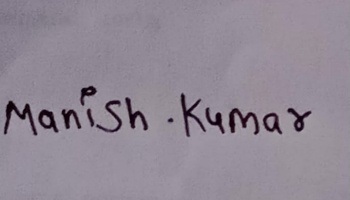 Manish .Kumar